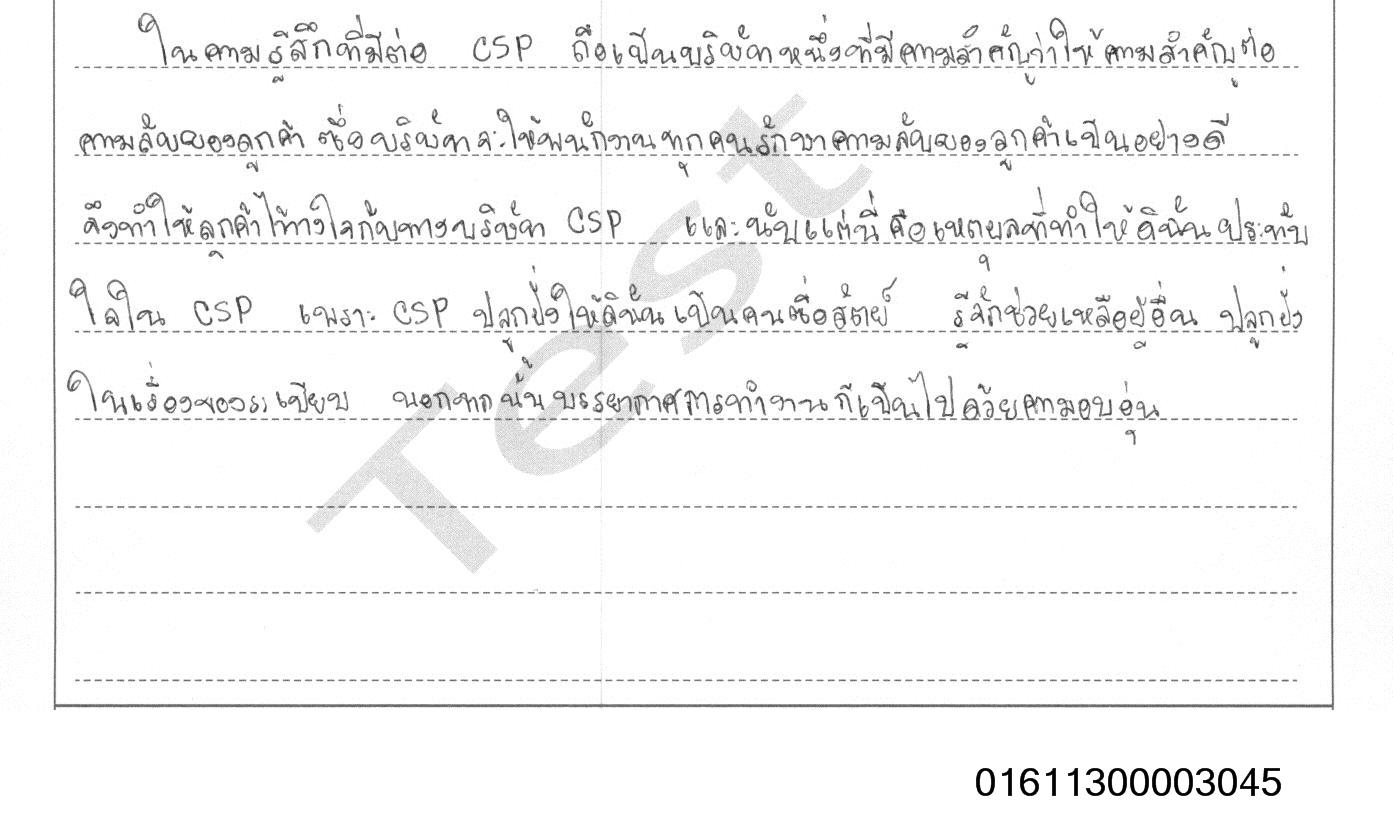 ในความรู้สึกที่มีต่อ CSP ถือเป็นบริษัทหนึ่งที่มีความสำคัญว่าให้ความสำคัญต่อ
ความลับของลูกค้า ซึ่งบริษัทจะให้พนักงานทุกคนรักษาความลับของลูกค้าเป็นอย่างดี
จึงทำให้ลูกค้าไว้วางใจกับทางบริษัท CSP และนับแต่นี้คือเหตุผลที่ทำให้ดิฉันประทับ
ใจใน CSP เพราะ CSP ปลูกฝังให้ดิฉันเป็นคนซื่อสัตย์ รู้จักช่วยเหลือผู้อื่น ปลูกฝัง
ในเรื่องของระเบียบ นอกจากนั้นบรรยากาศการทำงานก็เป็นไปด้วยความอบอุ่น
Test
01611300003045